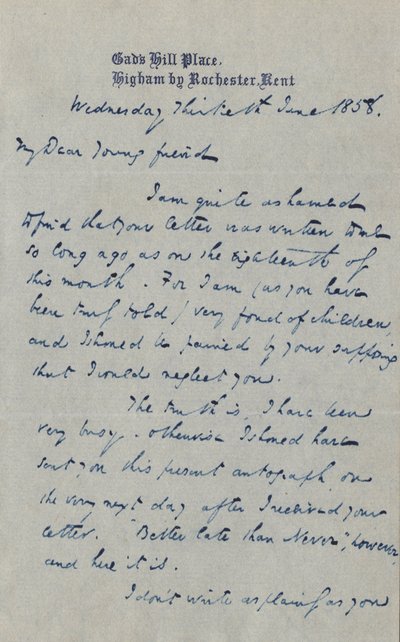 Gad's Hill Place,
Higham by Rochester, Kent
Wednesday Thirtieth June 1858.
My Dear Young friend
I am quite ashamed
to find that your letter was written to me
so long ago as on the Eighteenth of
this month. For I am (as you have
been truly told) very fond of children,
and I should be pained by your supposing
that I would neglect you.
The truth is, I have been
very busy. otherwise I should have
sent you this present autograph, on
the very next day after I received your
letter. "Better late than Never", however,
and here it is.
I don't write as plain as you